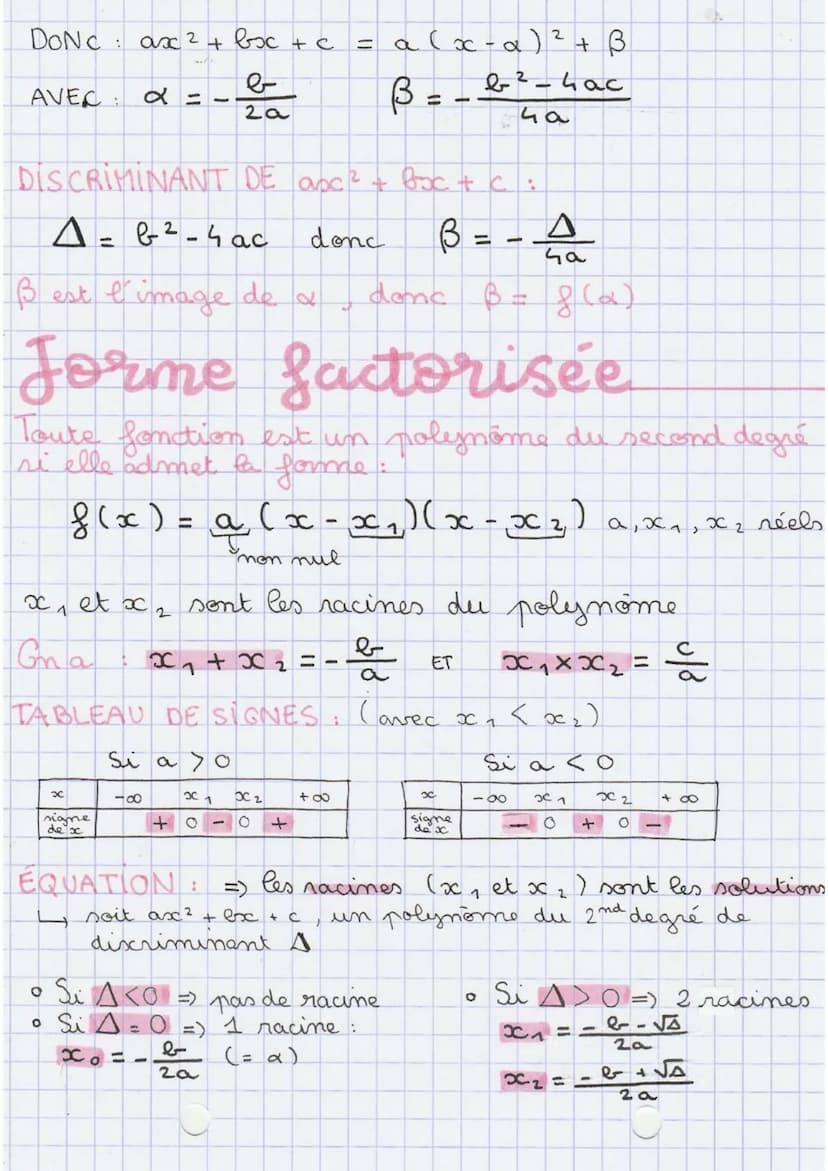 DONC : ax² + bx + c = a(x-α)² + β
AVEC : α = - b/2a β = - b²-4ac/4a
DISCRIMINANT DE ax² + bx + c :
Δ = b² - 4ac donc β = - Δ/4a
β est l'image de α , donc β = f(α)
Forme factorisée
Toute fonction est un polynôme du second degré
si elle admet la forme :
f(x) = a (x - x₁)(x - x₂) a, x₁, x₂ réels
non nul
x₁ et x₂ sont les racines du polynôme
On a : x₁ + x₂ = - b/a ET x₁ × x₂ = c/a
TABLEAU DE SIGNES : (avec x₁ < x₂)
Si a > 0 Si a < 0
x -∞ x₁ x₂ +∞ x -∞ x₁ x₂ +∞
signe de x + 0 - 0 + signe de x - 0 + 0 -
ÉQUATION : => les racines (x₁ et x₂) sont les solutions
↳ soit ax² + bx + c , un polynôme du 2nd degré de
discriminant Δ
° Si Δ<0 => pas de racine ° Si Δ > 0 => 2 racines
° Si Δ = 0 => 1 racine : x₁ = -b-√Δ/2a
x₀ = - b/2a (= α) x₂ = -b+√Δ/2a